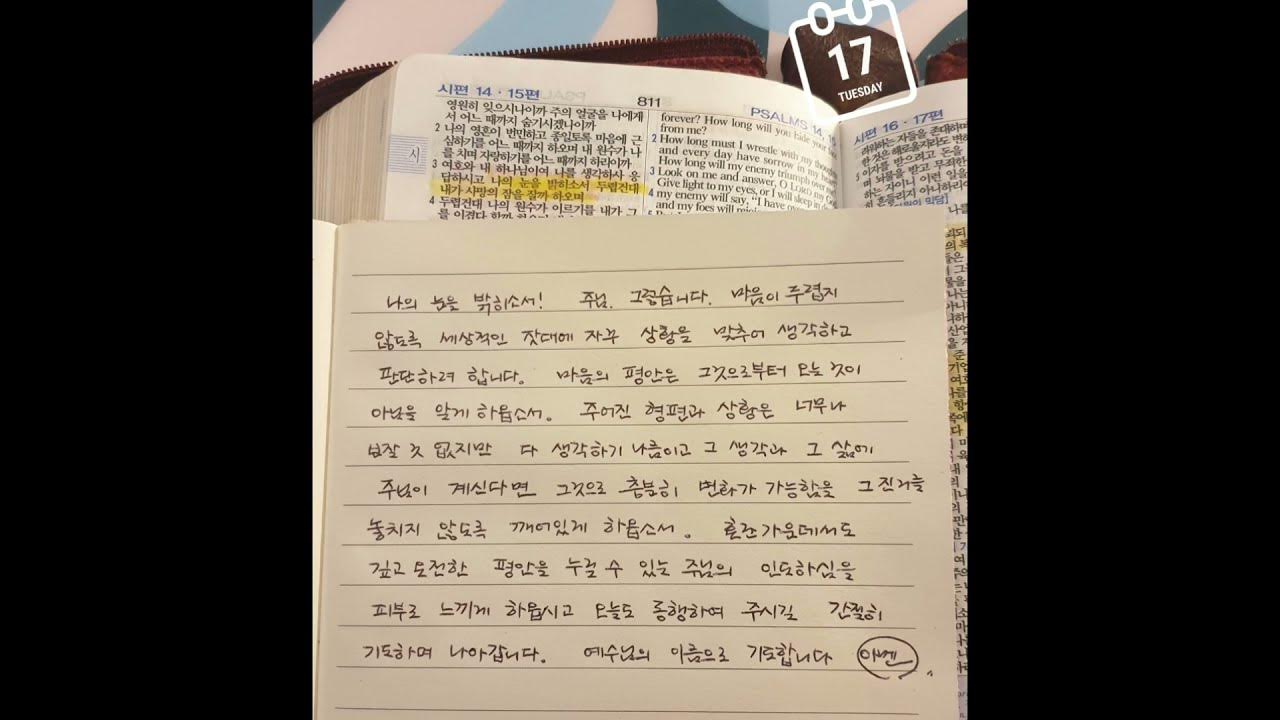 17
TUESDAY
시편 14 · 15편
811
PSALMS 14, 15
시편 16 · 17편
영원히 잊으시나이까 주의 얼굴을 나에게
서 어느 때까지 숨기시겠나이까
2 나의 영혼이 번민하고 종일토록 마음에 근
심하기를 어느 때까지 하오며 내 원수가 나
를 치며 자랑하기를 어느 때까지 하리이까
3 여호와 내 하나님이여 나를 생각하사 응
답하시고 나의 눈을 밝히소서 두렵건대
내가 사망의 잠을 잘까 하오며
4 두렵건대 나의 원수가 이르기를 내가 그
를 이겼다 할까 하오며
forever? How long will you hide your
from me?
2 How long must I wrestle with my thoughts
and every day have sorrow in my heart
How long will my enemy triumph over
3 Look on me and answer, O LORD my
Give light to my eyes, or I will sleep in
4 my enemy will say, "I have
and my foes will
시
나의 눈을 밝히소서! 주님. 그렇습니다. 마음이 두렵지
않도록 세상적인 잣대에 자꾸 상황을 맞추어 생각하고
판단하려 합니다. 마음의 평안은 그것으로부터 오는 것이
아님을 알게 하옵소서. 주어진 형편과 상황은 너무나
보잘 것 없지만 다 생각하기 나름이고 그 생각과 그 삶에
주님이 계신다면 그것으로 충분히 변화가 가능함을 그 진리를
놓치지 않도록 깨어있게 하옵소서. 혼란 가운데서도
깊고 온전한 평안을 누릴 수 있는 주님의 인도하심을
피부로 느끼게 하옵시고 오늘도 동행하여 주시길 간절히
기도하며 나아갑니다. 예수님의 이름으로 기도합니다 아멘